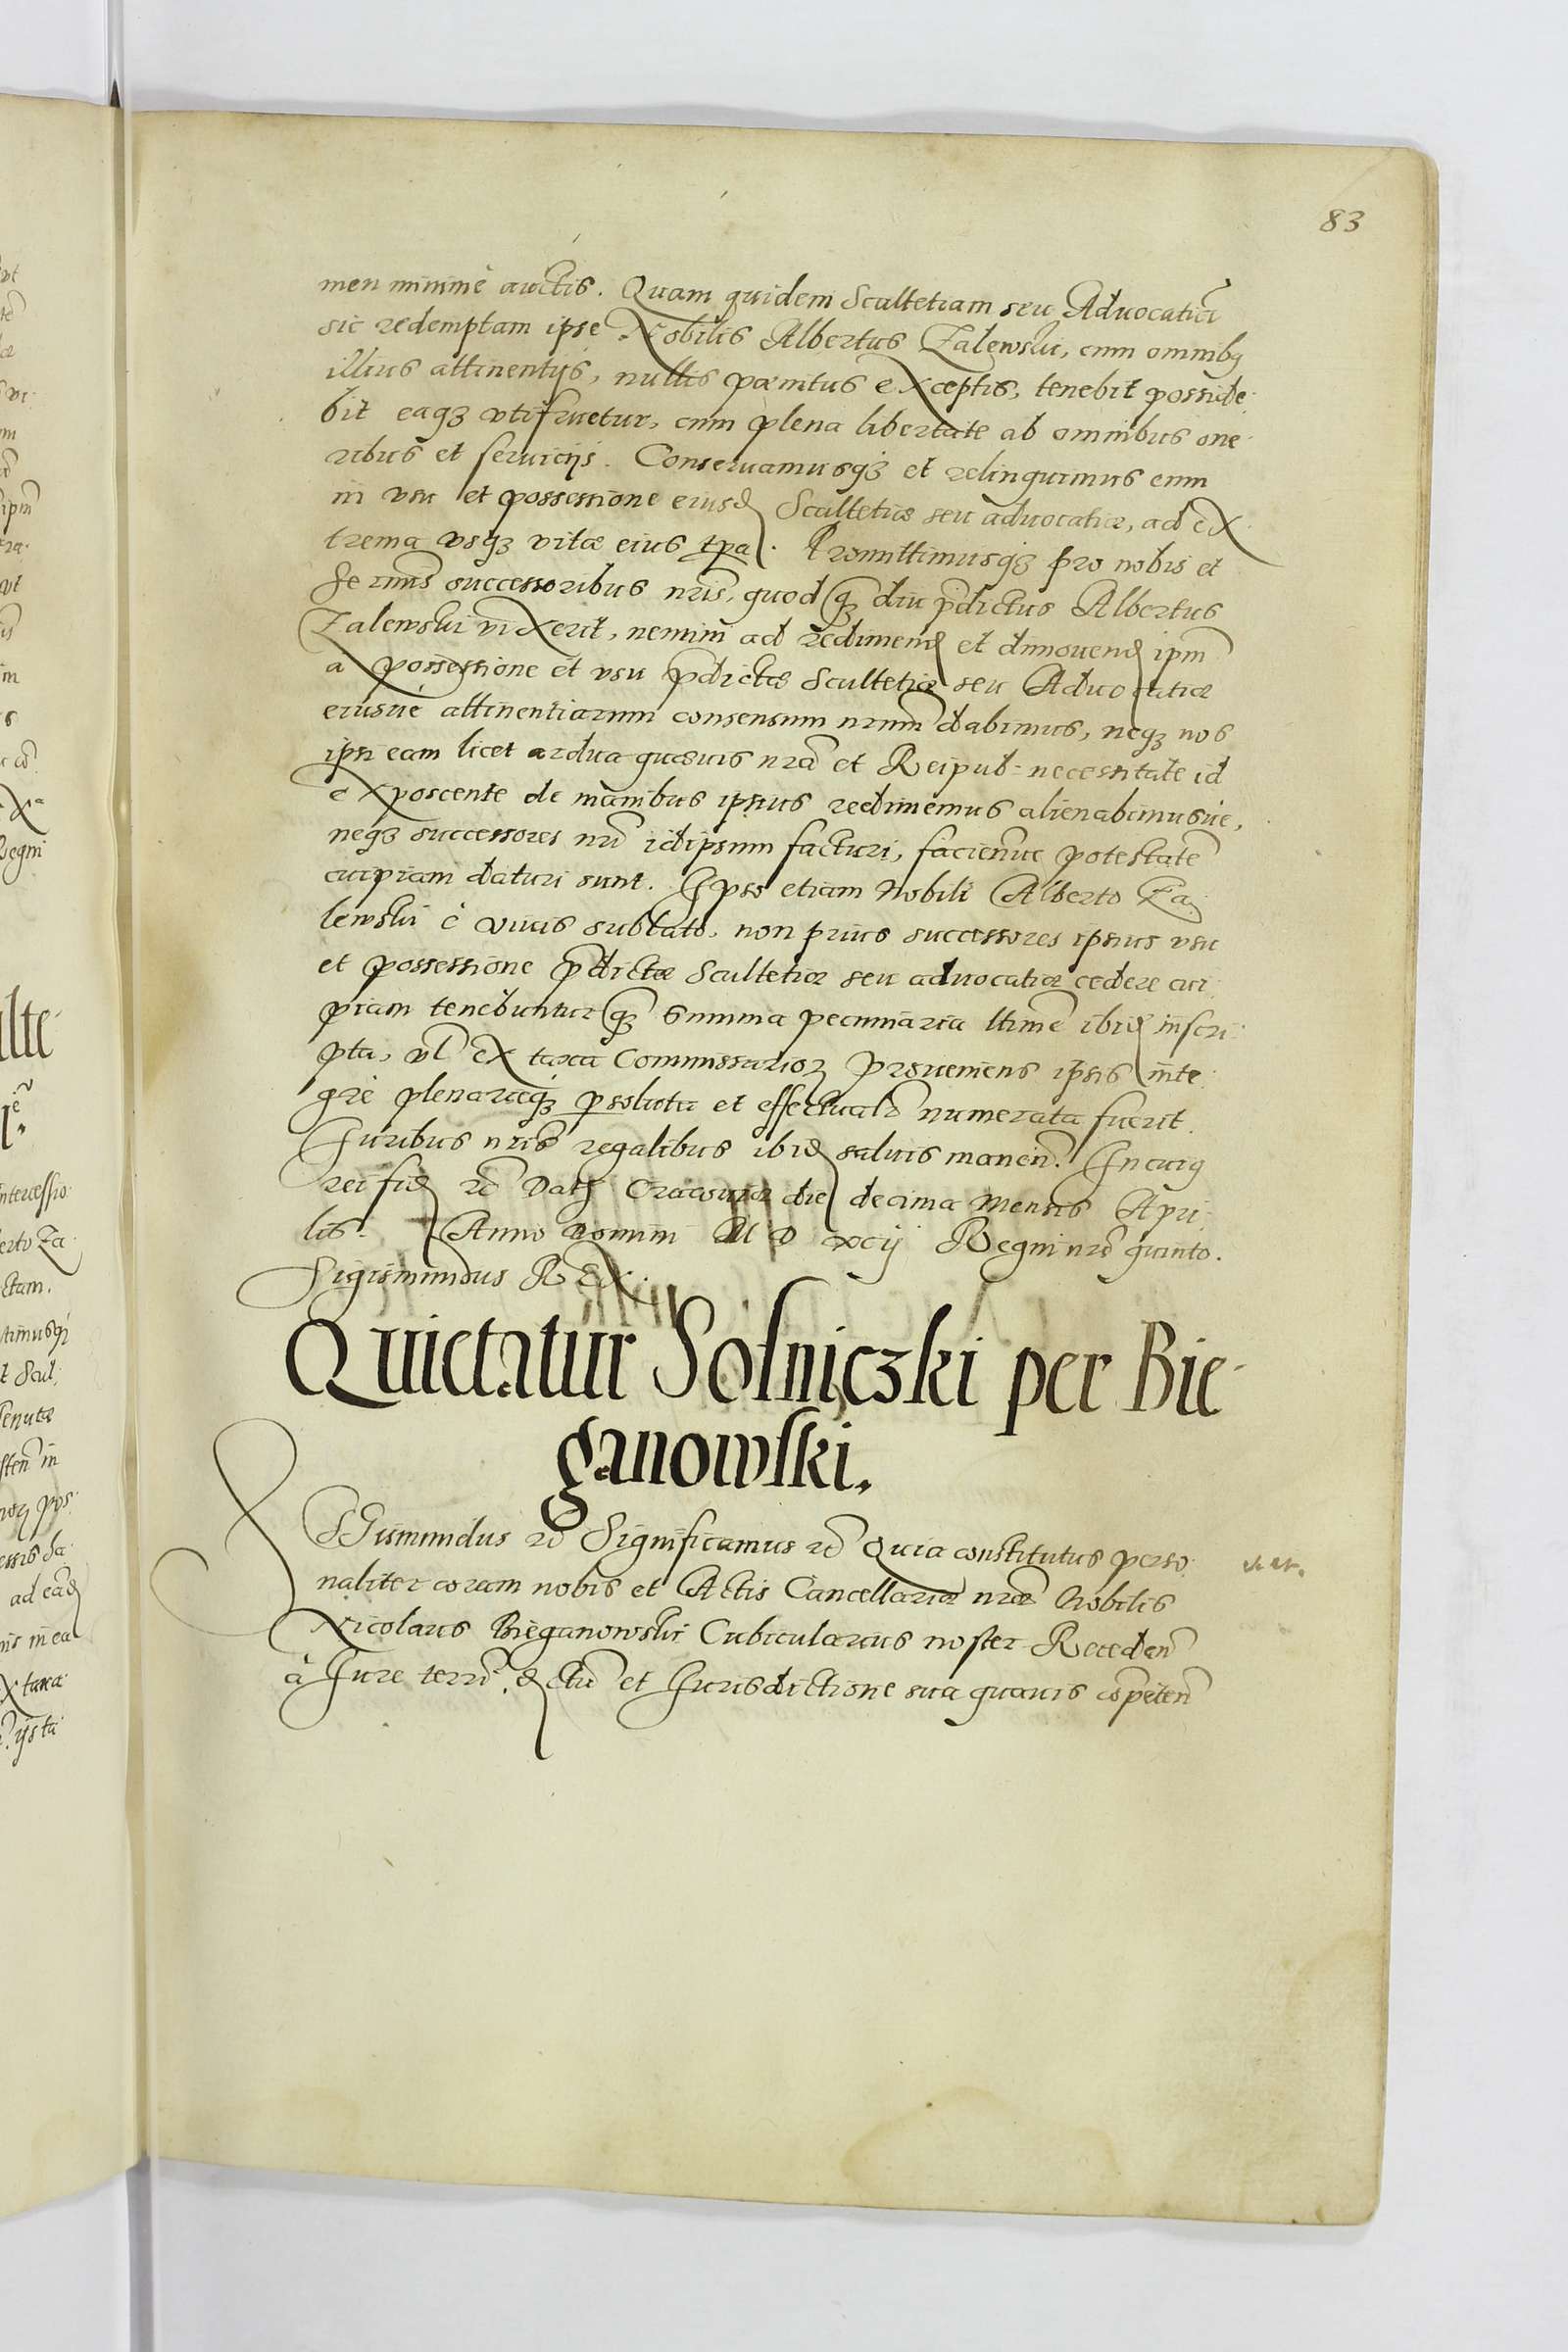 83
men minimè auctis. Quam quidem Scultetiam seu Aduocatiã
sic redemptam ipse Nobilis Albertus Zalewski, cum omnibꝫ
illius attinentijs, nullis pœnitus exceptis, tenebit posside-
bit eaqꝫ vtifruetur, cum plena libertate ab omnibus one-
ribus et seruicijs. Conseruamusqꝫ et relinquimus eum
in vsu et possessione eiusd Scultetiæ seu aduocatiæ, ad ex
trema vsqꝫ vitæ eius tpa. Promittimusqꝫ pro nobis et
Se rmis successoribus nris, quod qꝫ diu pdictus Albertus
Zalewski vixerit, nemini ad redimend et dimouend ipm
a possessione et vsu pdictæ Scultetiæ seu Aduocatiæ
eiusuè attinentiarum consensum nrum dabimus, neqꝫ nos
ipsi eam licet ardua quæuis nrã et Reipub: necessitate id
exposcente de manibus ipsius redimemus alienabimusuè,
neqꝫ successores nri idipsum facturi, faciendiuè potestatẽ
cuipiam daturi sunt. Ipso etiam Nobili Alberto Za
lewski è viuis sublato, non prius successores ipsius vsu
et possessione pdictæ Scultetiæ seu aduocatiæ cedere cui
piam tenebuntur qꝫ summa pecuniaria ltimẽ ibid inscri-
pta, vl ex taxa Commissarior proueniens ipsis inte
grè plenarieqꝫ psoluta et effectualr numerata fuerit.
Iuribus nris regalibus ibid saluis manen. In cuiq
rei fid rc Dat Cracouiæ die decima Mensis Apri
lis. Anno Domini M D xcij Regni nri quinto.
Sigismundus REX.
Quietatur Solniczki per Bie-
ganowski.
SGismundus rc Significamus rc Quia constitutus perso
naliter coram nobis et Actis Cancellariæ nræ Nobilis
Nicolaus Bieganowski Cubicularius noster Receden
à Iure terri. d Ctu et Iurisdictione sua quauis cõpeten